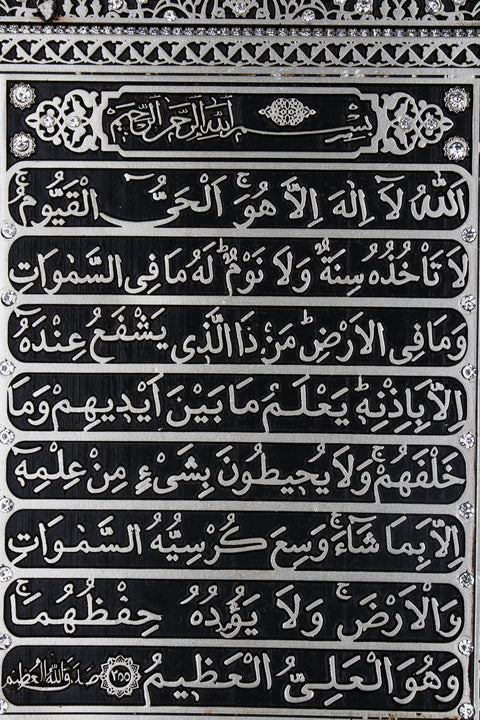 بِسْمِ اللهِ الرَّحْمٰنِ الرَّحِيمِ
اَللهُ لَآ اِلٰهَ اِلَّا هُوَۚ اَلْحَىُّ الْقَيُّومُۚ
لَا تَأْخُذُهُ سِنَةٌ وَلَا نَوْمٌۜ لَهُ مَا فِى السَّمٰوَاتِ
وَمَا فِى الْاَرْضِۜ مَنْ ذَا الَّذِى يَشْفَعُ عِنْدَهُٓ
اِلَّا بِاِذْنِهِۜ يَعْلَمُ مَا بَيْنَ اَيْدِيهِمْ وَمَا
خَلْفَهُمْۚ وَلَا يُحِيطُونَ بِشَىْءٍ مِنْ عِلْمِهِٓ
اِلَّا بِمَا شَآءَۚ وَسِعَ كُرْسِيُّهُ السَّمٰوَاتِ
وَالْاَرْضَۚ وَلَا يَؤُدُهُ حِفْظُهُمَاۚ
وَهُوَ الْعَلِىُّ الْعَظِيمُ ﴿٢٥٥﴾ صَدَقَ اللهُ الْعَظِيمُ